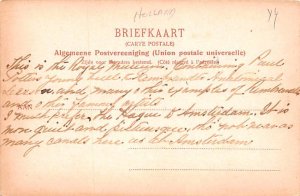 HOLLAND
BRIEFKAART
(CARTE POSTALE)
Algemeene Postvereeniging (Union postale universelle)
Zijde voor het adres bestemd. (Côté réservé à l'adresse)
This is the Museum, Containing Paul
Potter's young bull & Rembrandt's Anatomical
and many examples of Rembrandt
and other famous artists
I much prefer the Hague to Amsterdam. It is
more quiet and picturesque, tho' not near as
many canals here as at Amsterdam